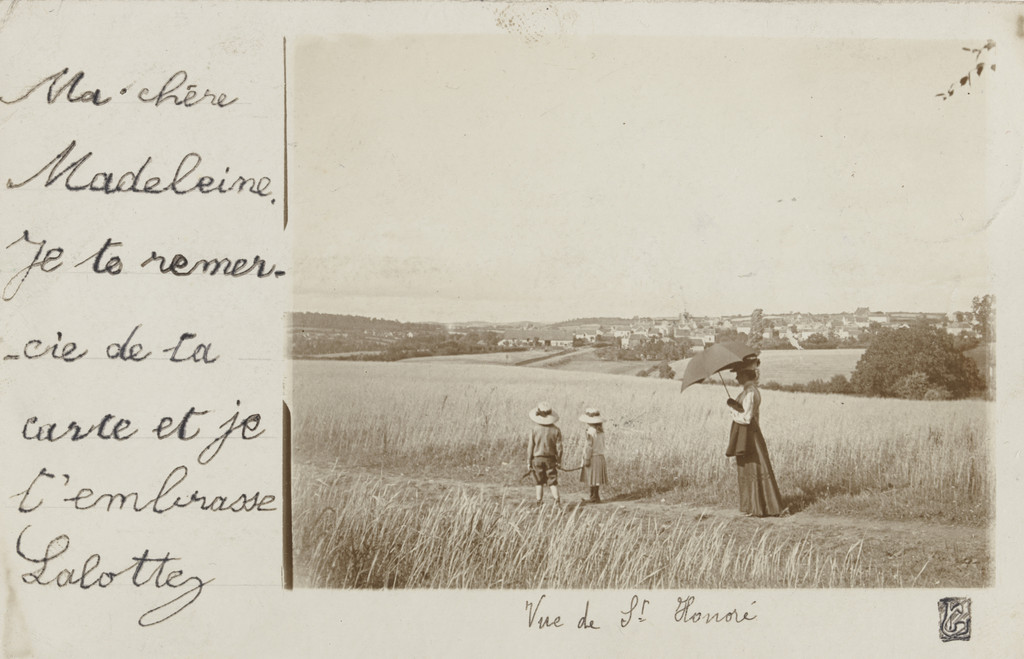 Ma chère
Madeleine.
Je te remer-
-cie de ta
carte et je
t'embrasse
Lalotte
Vue de St Honoré